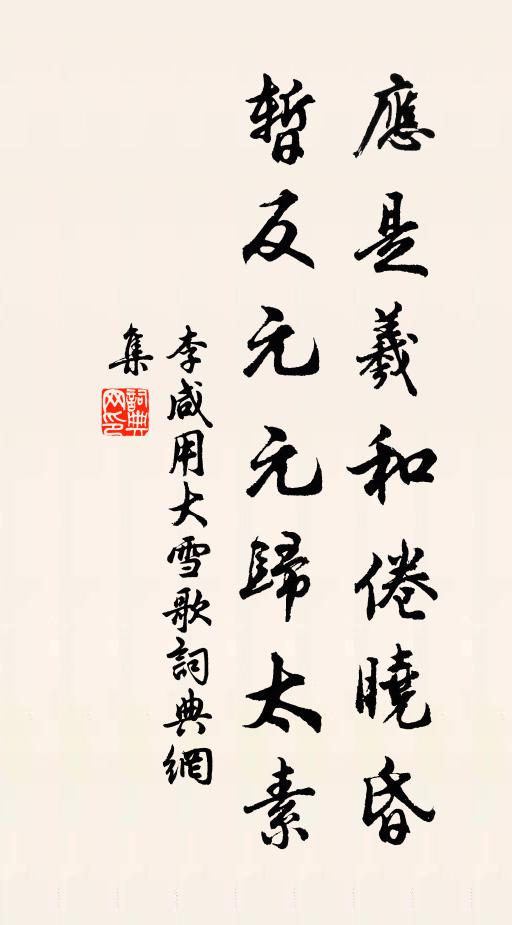 應是羲和倦曉昏
暫反元元歸太素
李咸用大雪歌詞典網
集
詞典
网印